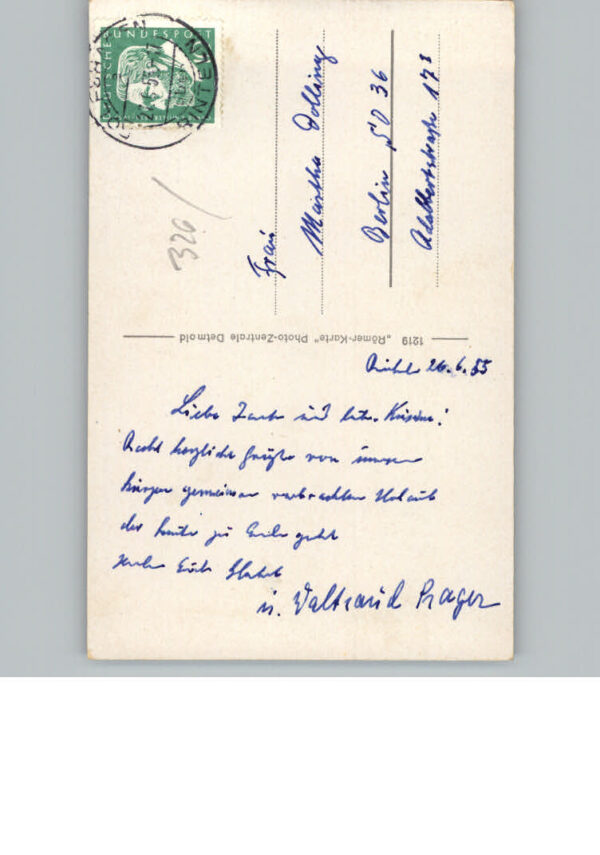 DEUTSCHE BUNDESPOST
RINTELN
326
Frau
Martha Dolling
Berlin SO 36
Adalbertstraße 17
1219 „Römer-Karte" Photo-Zentrale Detmold
26.6.55
Liebe Tante und
Recht herzliche Grüße von unserem
kurzen gemeinsam verbrachten Urlaub
der heute zu Ende geht
Euch
u. Waltraud Prager